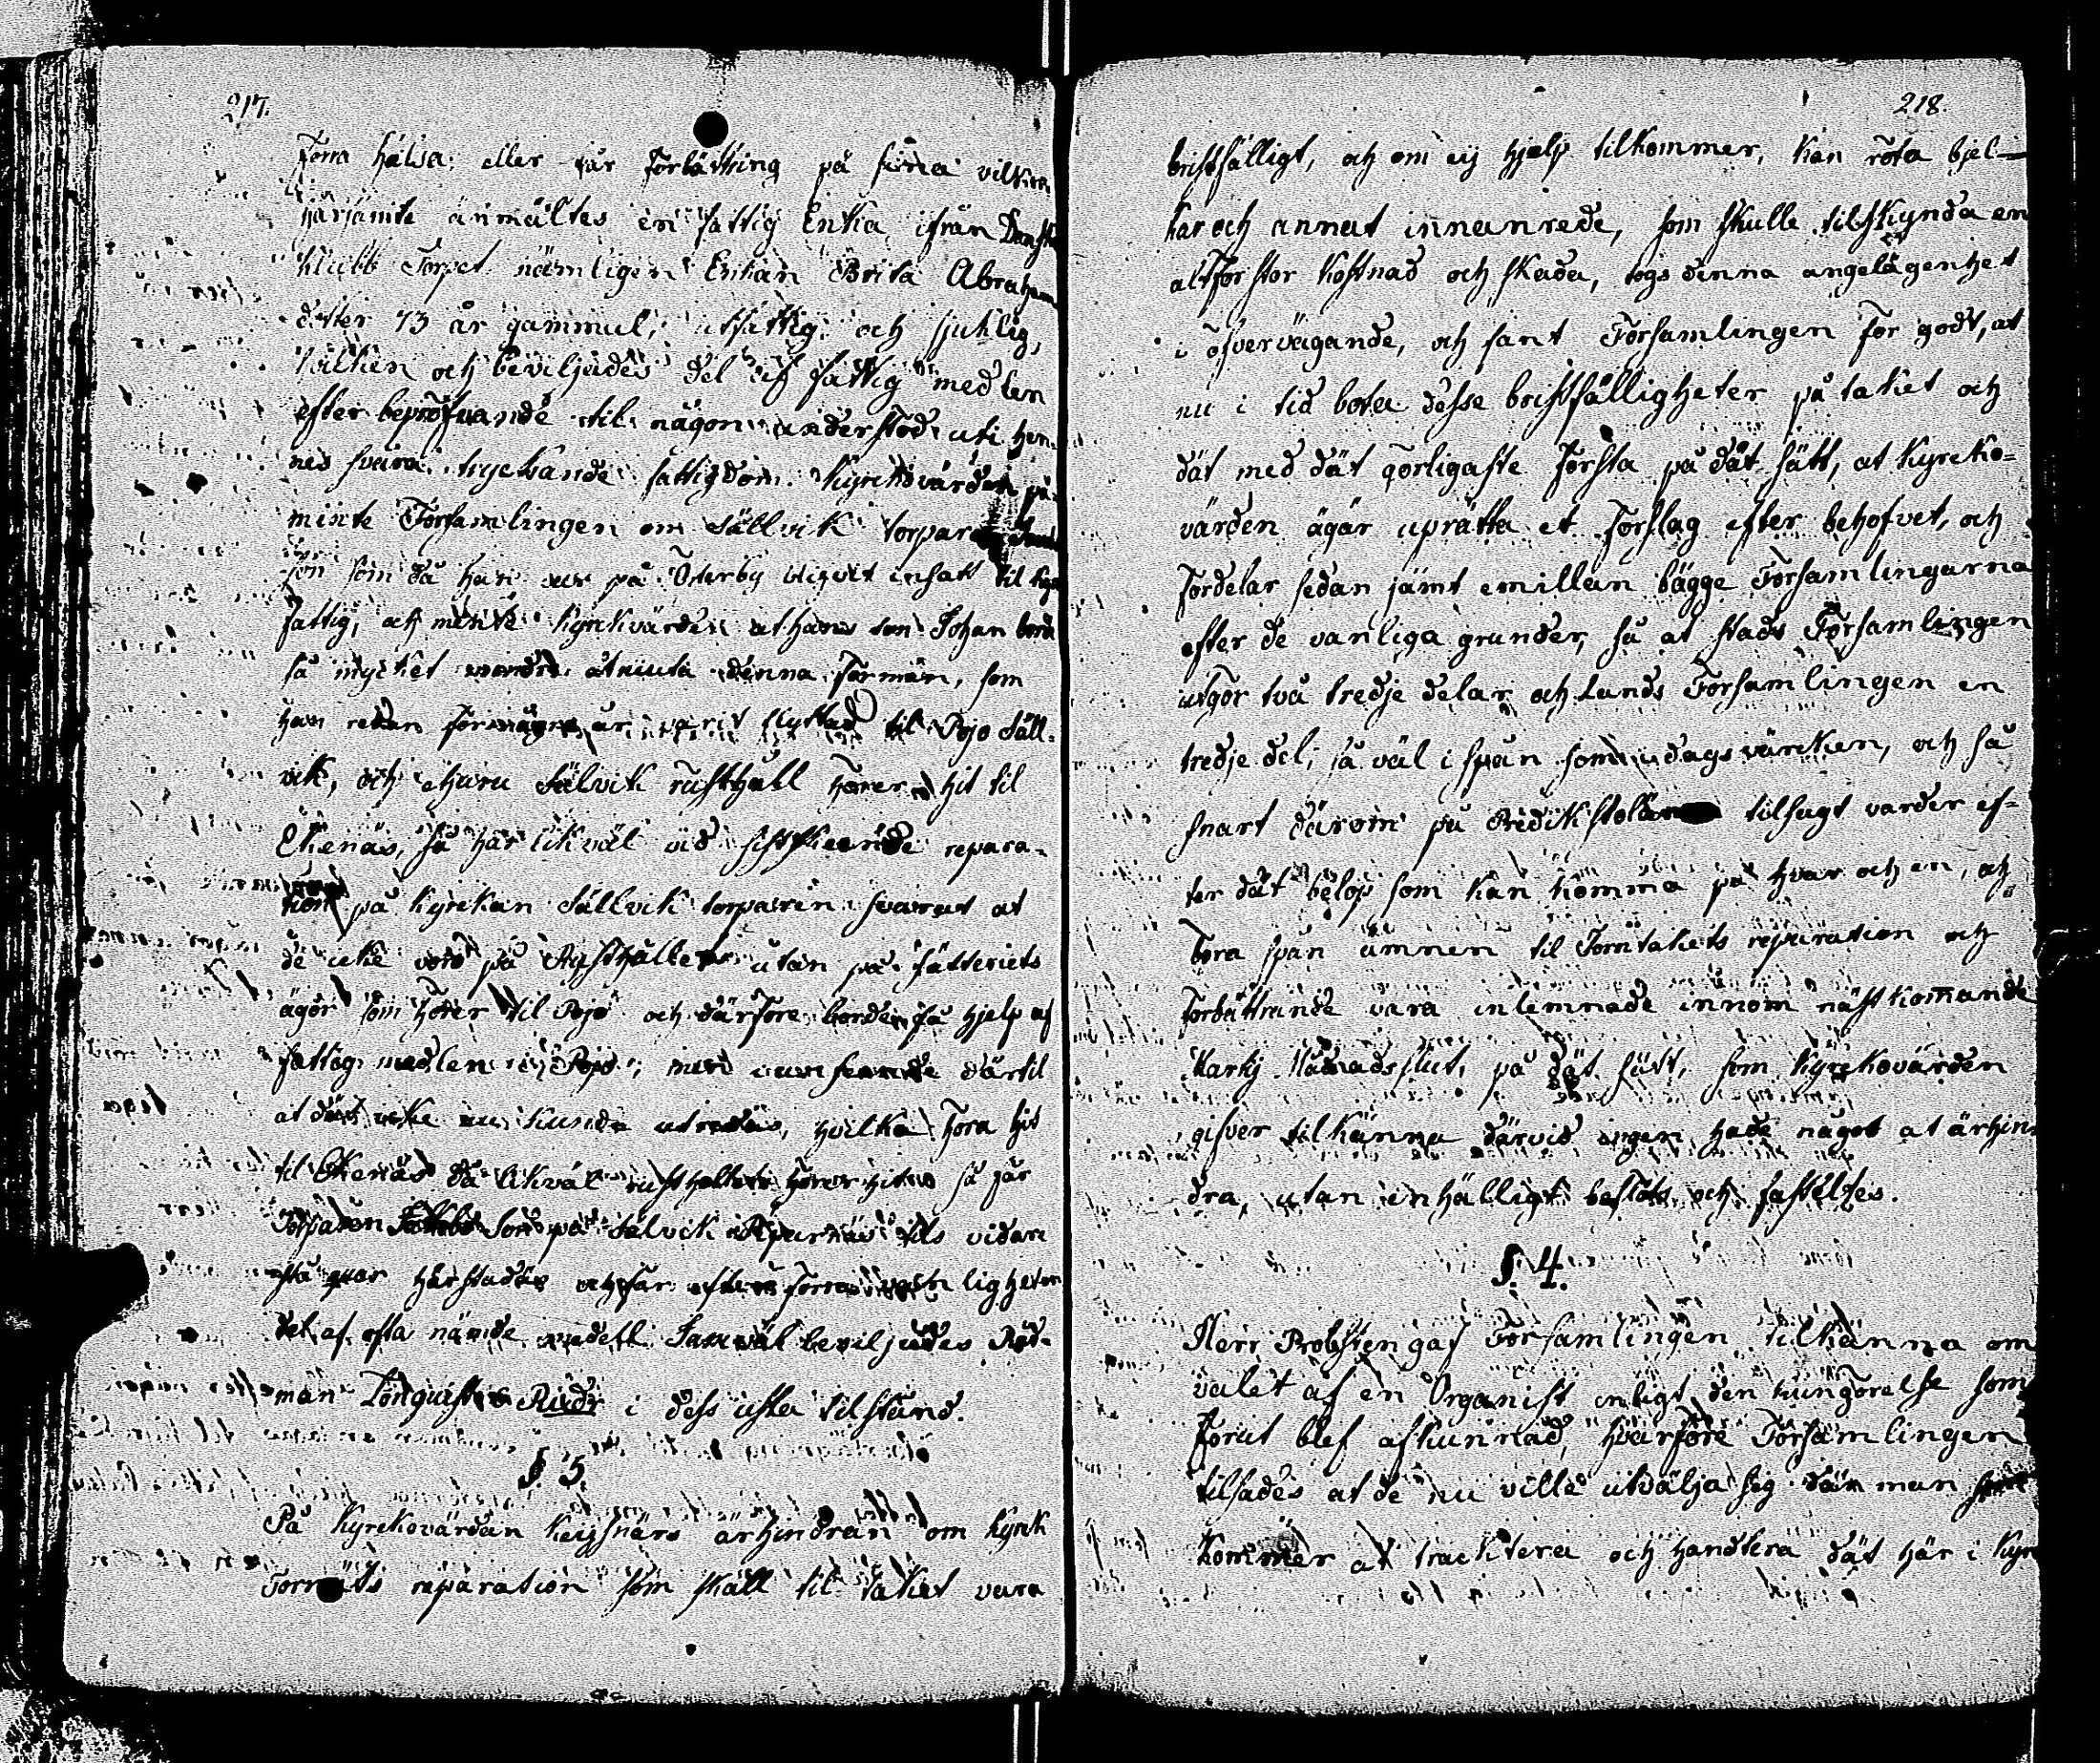 217.
förra hälsa eller får förbättring på sina vilkor
härjämte anmältes en fattig Enka ifrån Dansk
klubb Torpet nämligen Enkan Brita Abrahams
dotter 73 år gammul, utfattig och sjuklig,
hvilken och beviljades del af fattig medlen
efter bepröfvande til någon understöd uti hen-
nes svåra tryckande fattigdom. Kyrkovärden på-
minte Församlingen om Sällvik torparen
son som då han var på Österby blifvit insatt til
fattig, och mente Kyrkvärden at hans son Johan borde
så mycket mindre åtniuta denna förmån, som
han redan för några år varit flyttad til Pojo Säll-
vik, och ehuru Sälvik rusthåll hörer hit til
Ekenäs, så har likväl vid sistskeende repara-
tion på Kyrckan Sällvik torparen svarat at
de icke voro på Rusthållet utan på säteriets
ägor som hörer til Pojo och därföre borde få hjelp af
fattig medlen i Pojo; men i anseende därtil
at det icke nu kunde utredas, hvilka höra hit
til Ekenäs då likväl rusthållet hörer hit så får
Torparen son på Sälvik tils vidare
stå qvar härstädes och får efter förra vanligheten
del af ofta nämde medell Samväl beviljades Råd-
man Lönquists i dess usla tilstånd.
§. 3.
På Kyrckovärdan Keijsnärs ärhindran om Kyrk
Tornets reparation som skall til taket vara
218.
bristfälligt, och om ej hjelp tilkommer, kan röta bjel-
kar och annat innanrede, som skulle tilskynda en
altför stor kostnad och skada, togs denna angelägenhet
i öfvervägande, och fant Församlingen för godt, at
nu i tid bota desse bristfälligheter på taket och
dät med dät görligaste första på dät sätt, at Kyrcko-
värden ägär uprätta et förslag efter behofvet, och
fördelar sedan jämt emillan bägge Församlingarna
efter de vanliga grunder, så at stads Församlingen
utgör två tredje delar och Lands Församlingen en
tredje del, så väl i spån som i dagsvärcken, och så
snart därom på Predikstolen tilsagt varder ef-
ter dät belop som kan komma på hvar och en, och
böra spån ämnen til Torntakets reparation och
förbättrande vara inlemnade innom nästkomande
Martij Månads slut, på dät sätt, som Kyrckovärden
gifver tilkänna därvid ingen hade något at ärhin-
dra, utan enhälligt beslöts och fasteltes.
§. 4.
Herr Probsten gaf Församlingen tilkänna om
valet af en Organist enligt den kungörelse som
förut blef afkunnad, hvarföre Församlingen
tilsades at de nu ville utvälja sig dän man som
kommer at tracktera och handtera dät här i Kyr